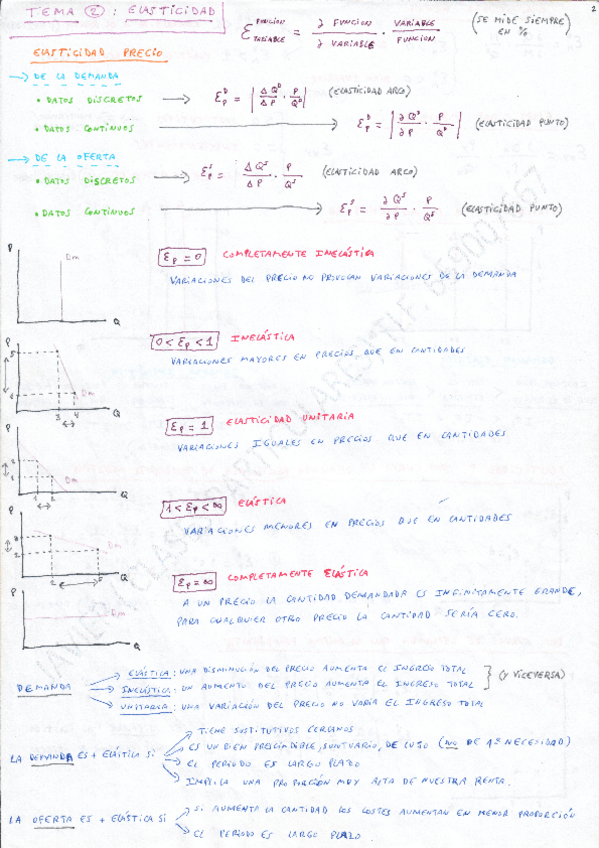 2
TEMA ②: ELASTICIDAD
ε FUNCION VARIABLE = ∂ FUNCION / ∂ VARIABLE · VARIABLE / FUNCION (SE MIDE SIEMPRE EN %)
ELASTICIDAD PRECIO
→ DE LA DEMANDA
• DATOS DISCRETOS → εpᴰ = | ΔQᴰ/ΔP · P/Qᴰ | (ELASTICIDAD ARCO)
• DATOS CONTINUOS → εpᴰ = | ∂Qᴰ/∂P · P/Qᴰ | (ELASTICIDAD PUNTO)
→ DE LA OFERTA
• DATOS DISCRETOS → εpˢ = ΔQˢ/ΔP · P/Qˢ (ELASTICIDAD ARCO)
• DATOS CONTINUOS → εpˢ = ∂Qˢ/∂P · P/Qˢ (ELASTICIDAD PUNTO)
P Dm Q
εp = 0 COMPLETAMENTE INELÁSTICA
VARIACIONES DEL PRECIO NO PROVOCAN VARIACIONES DE LA DEMANDA
P 5 Dm 3 4 Q
0 < εp < 1 INELÁSTICA
VARIACIONES MAYORES EN PRECIOS QUE EN CANTIDADES
P 2 1 1 2 Q
εp = 1 ELASTICIDAD UNITARIA
VARIACIONES IGUALES EN PRECIOS QUE EN CANTIDADES
P 2 Dm 2 5 Q
1 < εp < ∞ ELÁSTICA
VARIACIONES MENORES EN PRECIOS QUE EN CANTIDADES
P Dm Q
εp = ∞ COMPLETAMENTE ELÁSTICA
A UN PRECIO LA CANTIDAD DEMANDADA ES INFINITAMENTE GRANDE,
PARA CUALQUIER OTRO PRECIO LA CANTIDAD SERÍA CERO.
DEMANDA
ELÁSTICA: UNA DISMINUCIÓN DEL PRECIO AUMENTA EL INGRESO TOTAL
INELÁSTICA: UN AUMENTO DEL PRECIO AUMENTA EL INGRESO TOTAL
(Y VICEVERSA)
UNITARIA: UNA VARIACIÓN DEL PRECIO NO VARÍA EL INGRESO TOTAL
LA DEMANDA ES + ELÁSTICA SI
TIENE SUSTITUTIVOS CERCANOS
ES UN BIEN PRESCINDIBLE, SUNTUARIO, DE LUJO (NO DE 1ª NECESIDAD)
EL PERIODO ES LARGO PLAZO
IMPLICA UNA PROPORCIÓN MUY ALTA DE NUESTRA RENTA.
LA OFERTA ES + ELÁSTICA SI
SI AUMENTA LA CANTIDAD LOS COSTES AUMENTAN EN MENOR PROPORCIÓN
EL PERIODO ES LARGO PLAZO